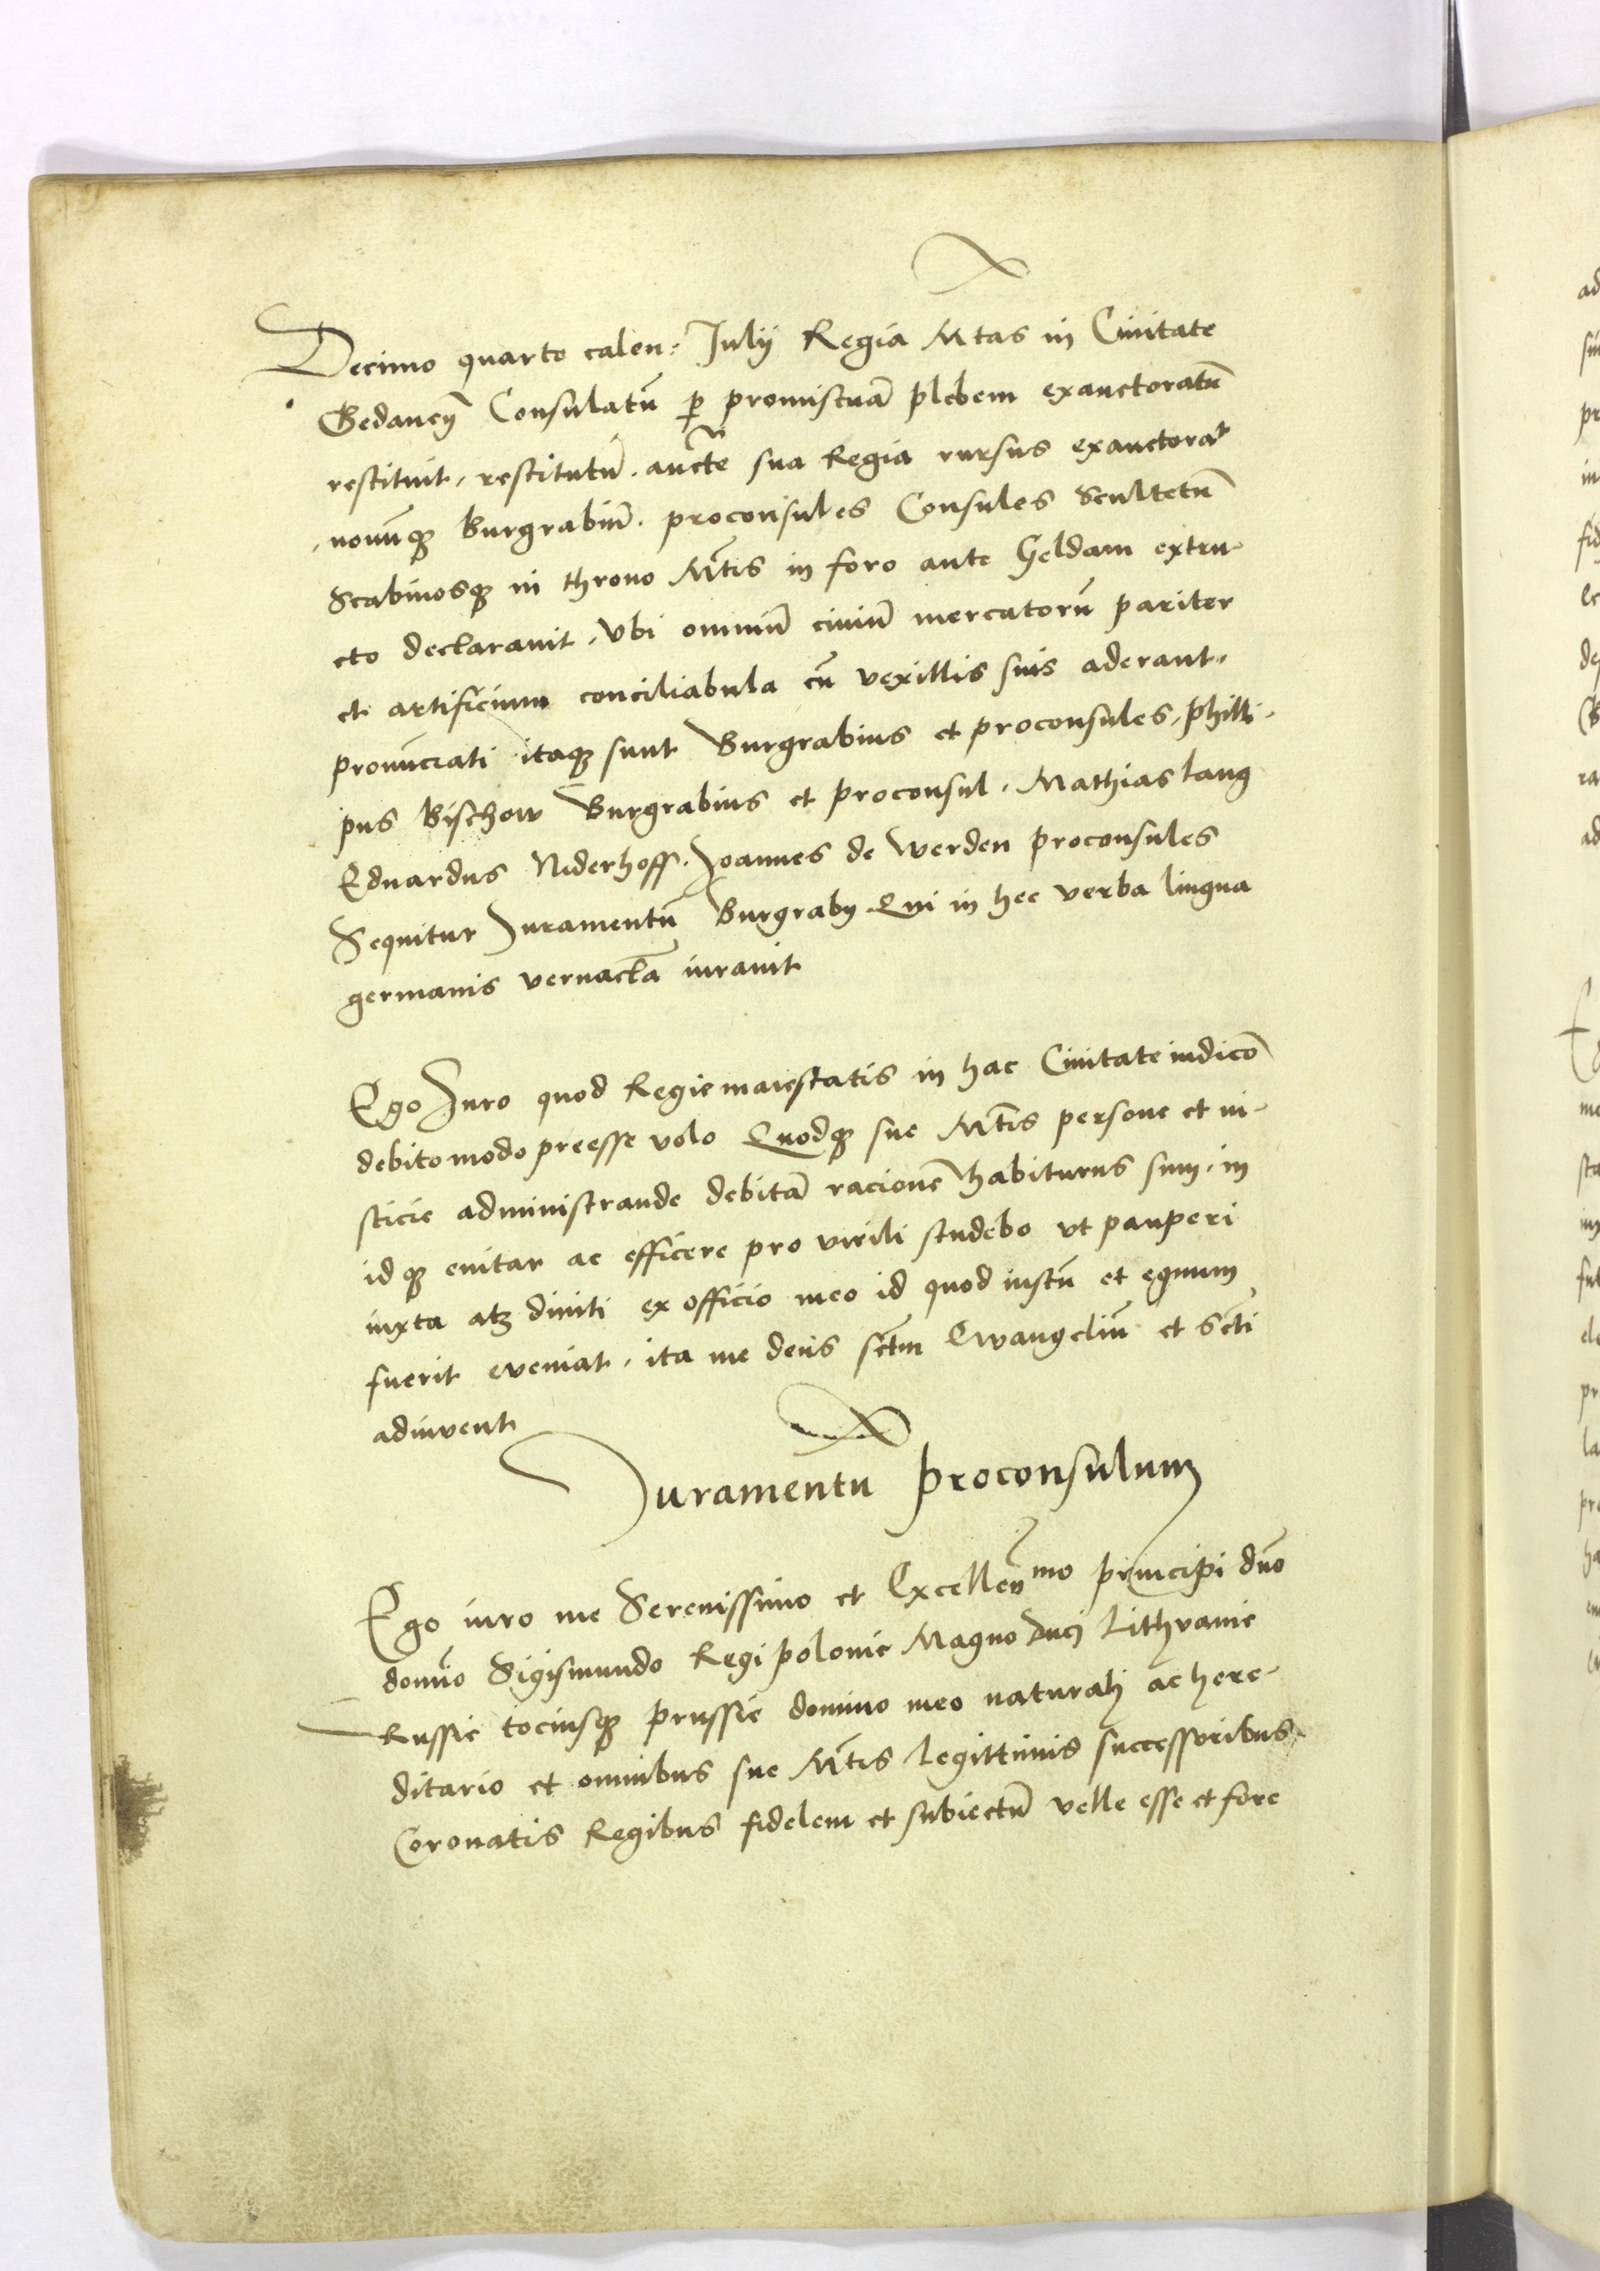 Decimo quarto calen: Julij Regia Mtas in Ciuitate
Gedaneñ Consulatū ꝑ promiscuā plebem exauctoratū
restituit, restitutū auc̄te sua Regia rursus exauctorat
nouūqꝫ Burgrabiū. proconsules Consules Scultetū
Scabinosqꝫ in throno Mt̄is in foro ante Geldam extru-
cto declarauit, Vbi omniū ciuiū mercatorū pariter
et artificium conciliabula cū vexillis suis aderant,
pronūciati itaqꝫ sunt Burgrabius et proconsules, Philli-
pus Bischow Burgrabius et proconsul, Mathias lang
Eduardus Niderhoff, Joannes de Werden proconsules
Sequitur Juramentū Burgrabij Qui in hec verba lingua
germanis vernac̄la iurauit
Ego Juro quod Regie maiestatis in hac Ciuitate iudicō
debito modo preesse volo Quodqꝫ sue Mt̄is persone et iu-
sticie administrande debitā racionē habiturus sum, in
id qꝫ enitar ac efficere pro virili studebo vt pauperi
iuxta atqꝫ diuiti ex officio meo id quod iustū et equum
fuerit eveniat, ita me deus sc̄tm Ewangeliū et Sc̄ti
adiuvent
Juramentu Proconsulum
Ego iuro me Serenissimo et Excellen̄mo principi dn̄o
domn̄o Sigismundo Regi polonie Magno Duci Lithvanie
Russie tociusqꝫ prussie domino meo naturali ac here-
ditario et omnibus sue Mt̄is legittimis successoribus
Coronatis Regibus fidelem et subiectū velle esse et fore